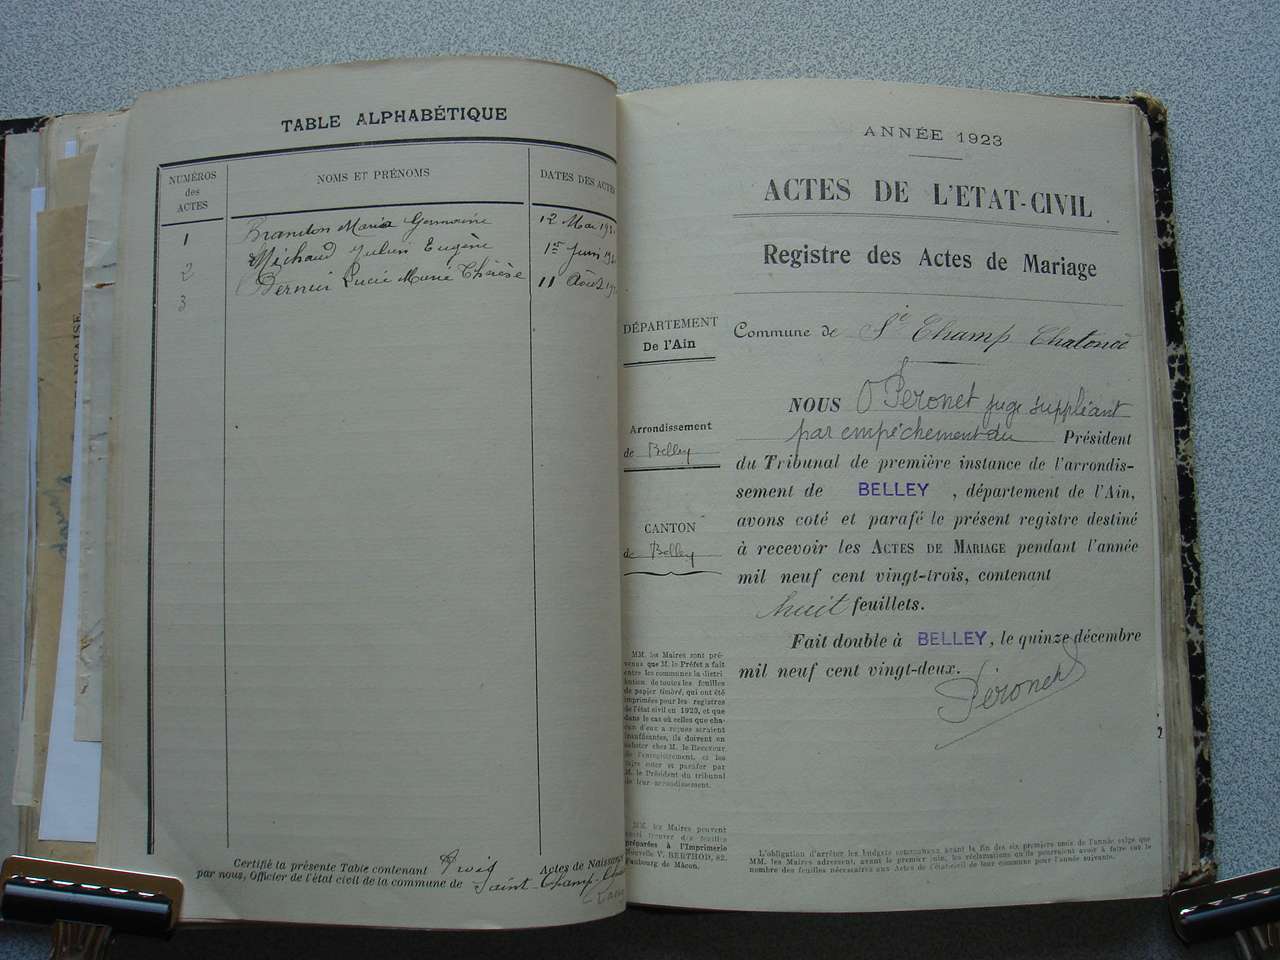 TABLE ALPHABÉTIQUE
NUMÉROS des ACTES
NOMS ET PRÉNOMS
DATES DES ACTES
1 Brandon Maria Germaine 12 Mai
2 Michaud Julien Eugène 1er Juin
3 Bernin Lucie Marie Thérèse 11 Août
Certifié la présente Table contenant trois Actes de Naissance
par nous, Officier de l'état civil de la commune de Saint-Champ-
ANNÉE 1923
ACTES DE L'ETAT-CIVIL
Registre des Actes de Mariage
DÉPARTEMENT
De l'Ain
Arrondissement
de Belley
CANTON
de Belley
MM. les Maires sont pré-
venus que M. le Préfet a fait
entre les communes la distri
bution de toutes les feuilles
de papier timbré, qui ont été
imprimées pour les registres
de l'état civil en 1923, et que
dans le cas où celles que cha-
cun d'eux a reçues seraient
insuffisantes, ils doivent en
acheter chez M. le Receveur
de l'enregistrement, et les
faire coter et parafer par
M. le Président du tribunal
de leur arrondissement.
MM. les Maires peuvent
aussi trouver des feuilles
préparées à l'Imprimerie
Nouvelle V. BERTHOD, 82,
Faubourg de Mâcon.
Commune de St Champ Chatonod
NOUS Peronet juge suppléant
par empêchement du Président
du Tribunal de première instance de l'arrondis-
sement de BELLEY, département de l'Ain,
avons coté et parafé le présent registre destiné
à recevoir les ACTES DE MARIAGE pendant l'année
mil neuf cent vingt-trois, contenant
huit feuillets.
Fait double à BELLEY, le quinze décembre
mil neuf cent vingt-deux.
Péronet
2
L'obligation d'arrêter les budgets communaux avant la fin des six premiers mois de l'année exige que
MM. les Maires adressent, avant le premier juin, les réclamations qu'ils pourraient avoir à faire sur le
nombre des feuilles nécessaires aux Actes de l'état-civil de leur commune pour l'année suivante.